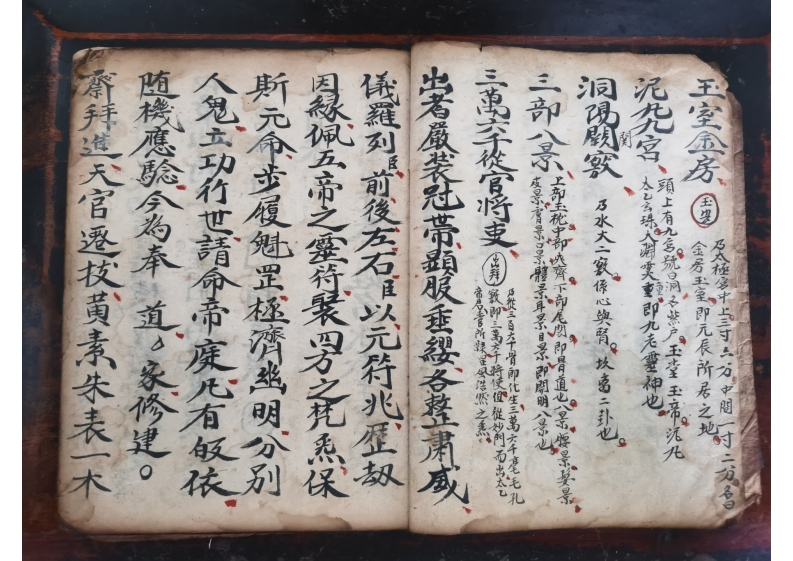 玉室金房 玉堂 乃太極宮中上三寸六方中間一寸二分名曰
金房玉室即元辰所居之地
泥丸九宮 頭上有九宮號曰洞名紫户玉堂玉帝泥丸
太乙玄珠入淵即九老靈神也
洞陽関竅 関 乃水火一竅係心與腎坎离二卦也
三部八景 上部玉枕中部夾脊下部尾閭即骨道也八景腰景髮景
皮景膏景口景體景耳景目景即開明八景也
三萬六千從官將吏 出拜 乃從三百六十骨節化生三萬六千毫毛孔
竅即三萬六千將吏但從妙門而出太乙
帝君
出者嚴裝冠帶顯服垂纓各整肅威
儀羅列臣前後左右臣以元符兆歷劫
因緣佩五帝之靈符襲四方之梵炁保
斯元命步履魁罡極濟幽明分别
人鬼立功行世請命帝庭凡有皈依
随機應驗今為奉 道家修建
齋拜進天官遷技黄素朱表一木